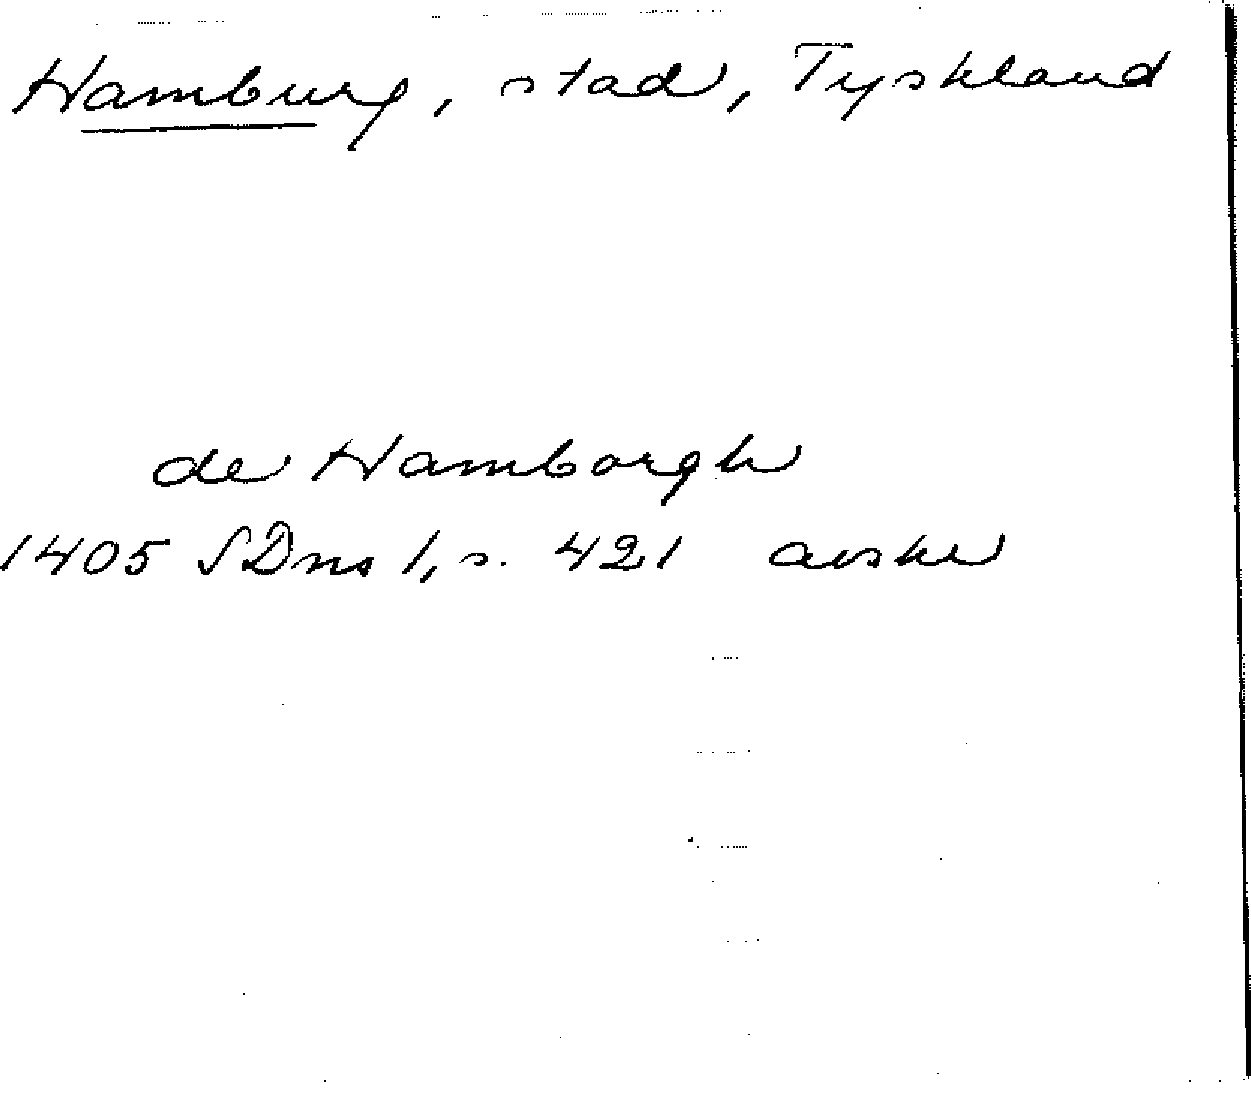 Hamburg, stad, Tyskland
de Hamborgh
1405 SDns 1, s. 421 avskr